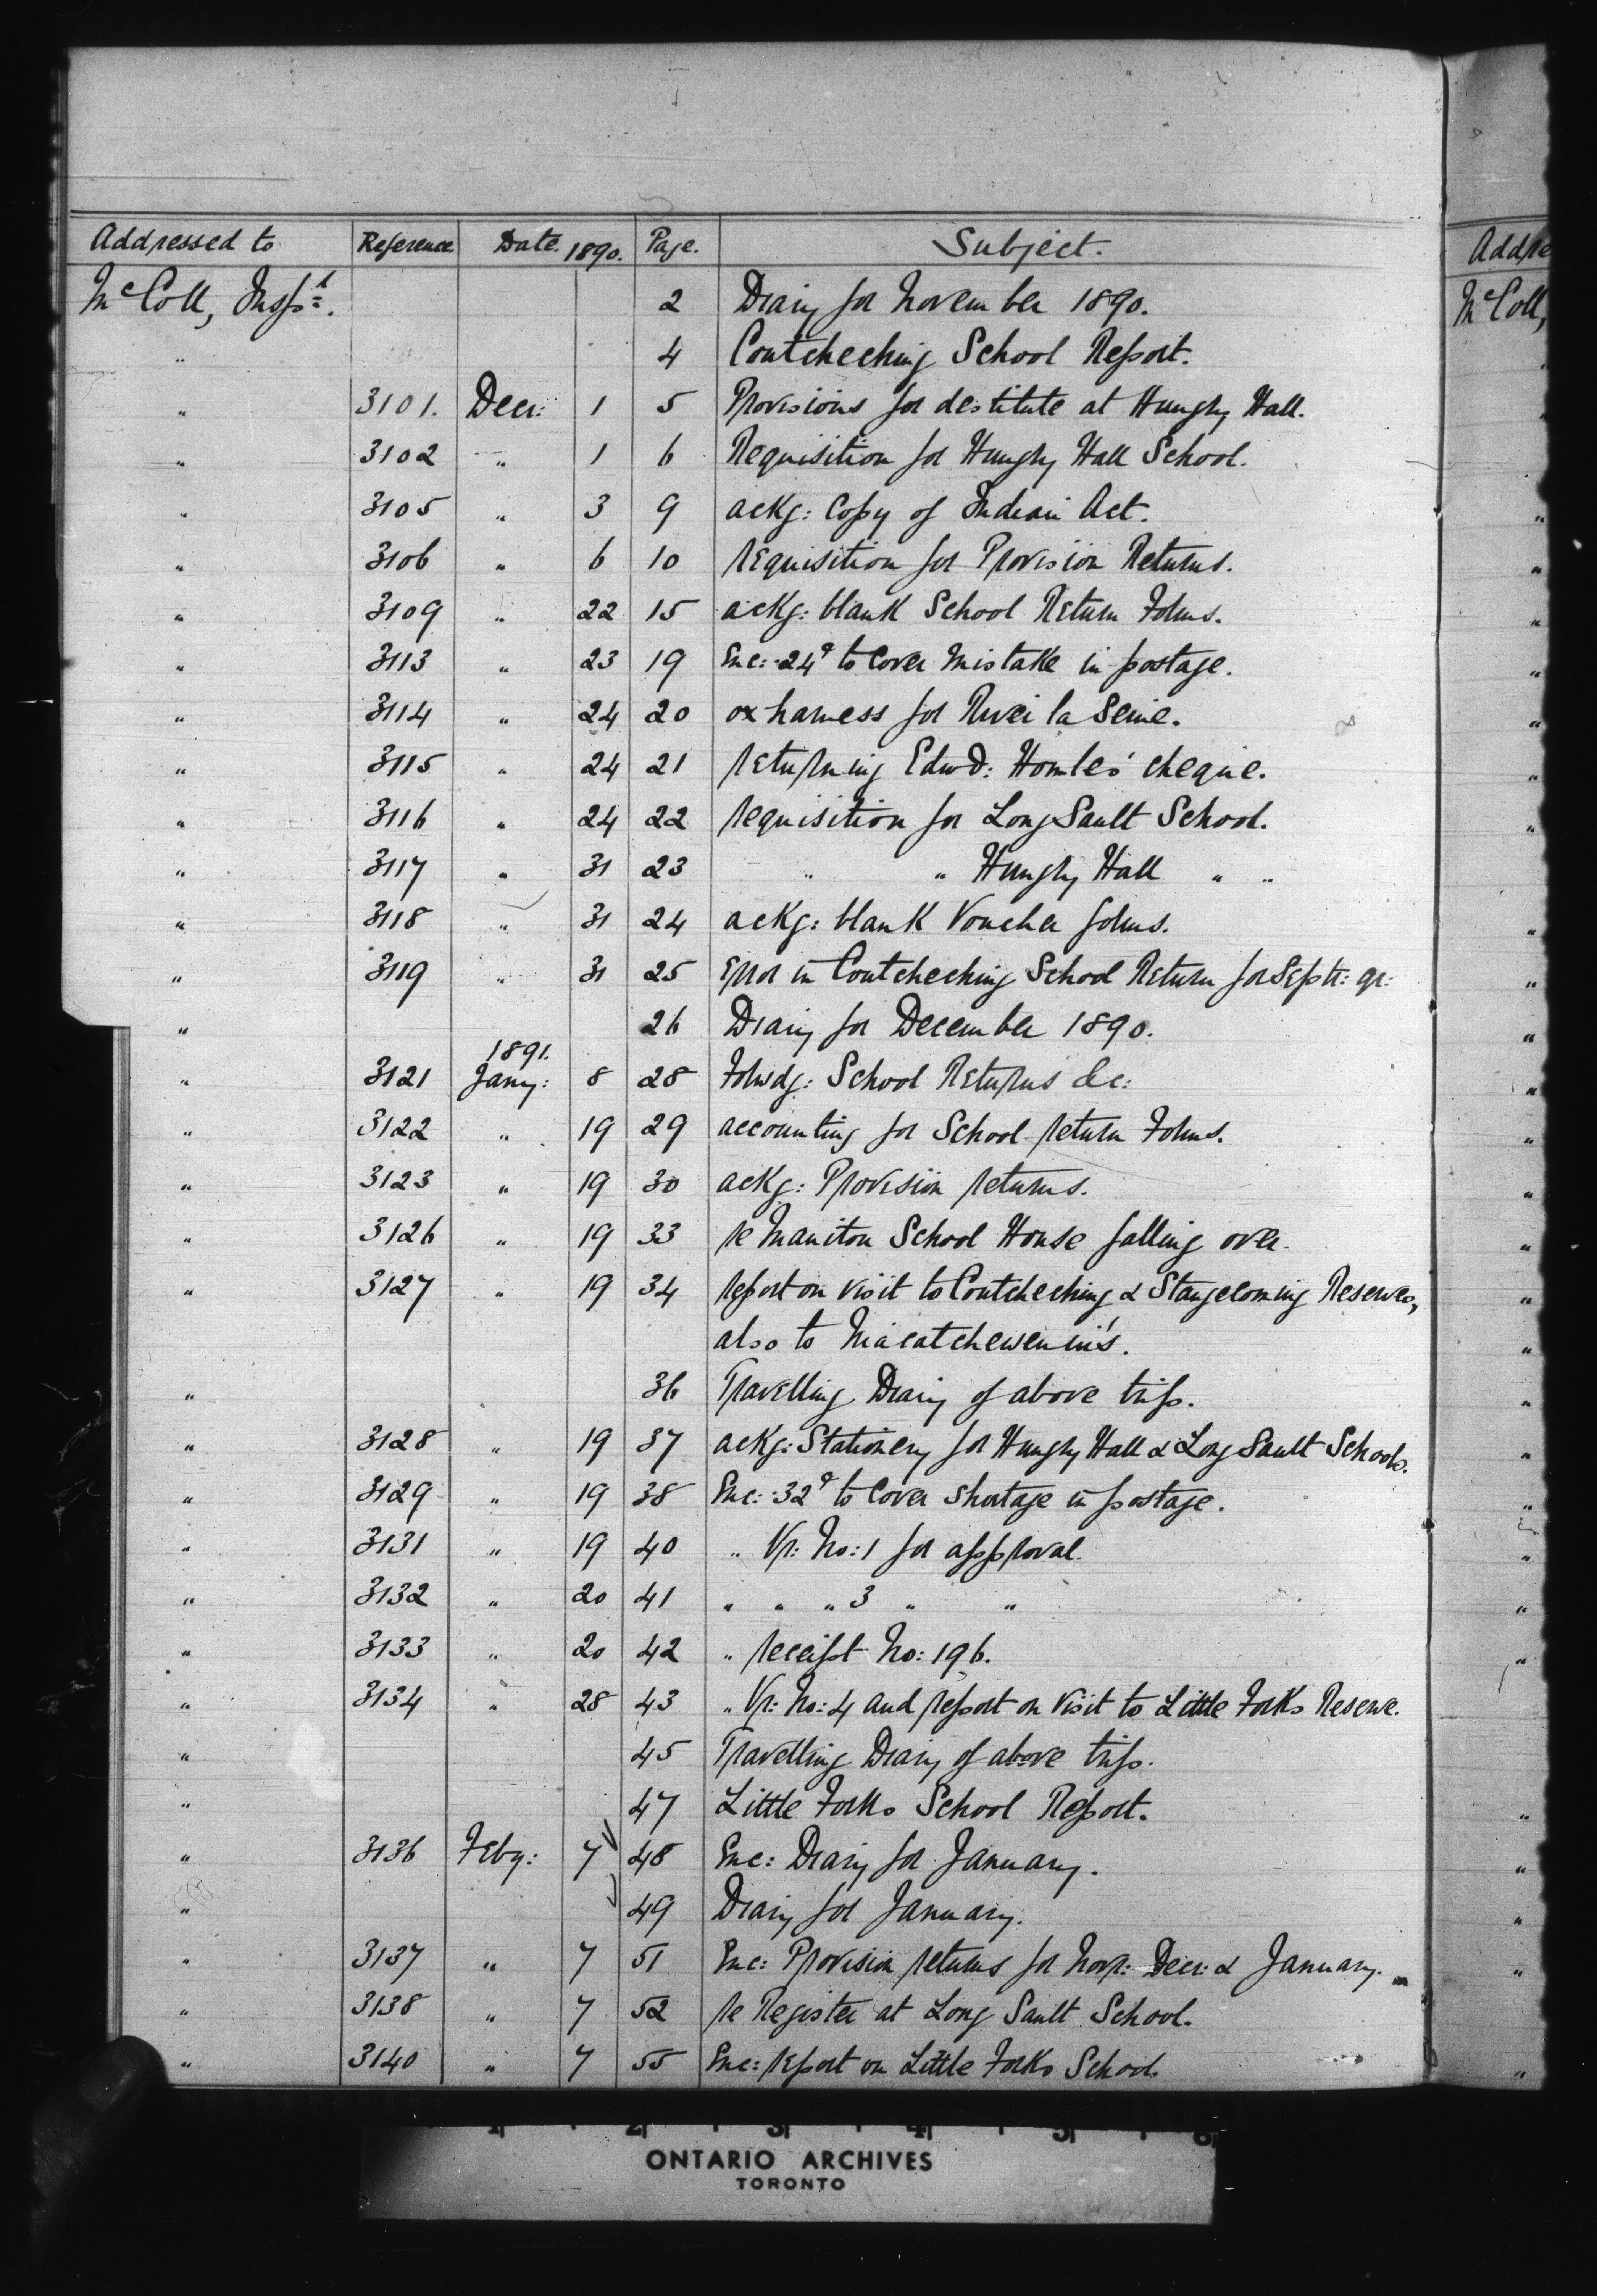 Addressed to Reference Date. 1890. Page. Subject.
McColl, Inspt. 2 Diary for November 1890.
" 4 Coutcheching School Report.
" 3101. Decr: 1 5 Provisions for destitute at Hungry Hall.
" 3102 " 1 6 Requisition for Hungry Hall School.
" 3105 " 3 9 ackg: Copy of Indian Act.
" 3106 " 6 10 requisition for Provision Returns.
" 3109 " 22 15 ackg: blank School Return Forms.
" 3113 " 23 19 Enc: 24¢ to Cover Mistake in postage.
" 3114 " 24 20 ox harness for River la Seine.
" 3115 " 24 21 returning Edwd: cheque.
" 3116 " 24 22 requisition for Long Sault School.
" 3117 " 31 23 " " Hungry Hall " "
" 3118 " 31 24 ackg: blank Voucher forms.
" 3119 " 31 25 Error in Coutcheching School Return for Septr: qr:
" 26 Diary for December 1890.
1891.
" 3121 Jany: 8 28 Forwdg: School Returns &c:
" 3122 " 19 29 accounting for School return Forms.
" 3123 " 19 30 ackg: Provision returns.
" 3126 " 19 33 re Manitou School House falling over.
" 3127 " 19 34 report on visit to Coutcheching & Stangecoming Reserves,
also to Niacatchewenin's.
" 36 Travelling Diary of above trip.
" 3128 " 19 37 ackg: Stationery for Hungry Hall & Long Sault Schools.
" 3129 " 19 38 Enc: 32¢ to Cover shortage in postage.
" 3131 " 19 40 " Vr: No: 1 for approval.
" 3132 " 20 41 " " " 3 " "
" 3133 " 20 42 " receipt No: 196.
" 3134 " 28 43 " Vr: No: 4 and report on visit to Little Forks Reserve.
" 45 Travelling Diary of above trip.
" 47 Little Forks School Report.
" 3136 Feby: 7 48 Enc: Diary for January.
" 49 Diary for January.
" 3137 " 7 51 Enc: Provision returns for Novr: Decr: & January.
" 3138 " 7 52 re Register at Long Sault School.
" 3140 " 7 55 Enc: report on Little Forks School.
Addre
McColl,
1 2 3 4 5 6
ONTARIO ARCHIVES
TORONTO